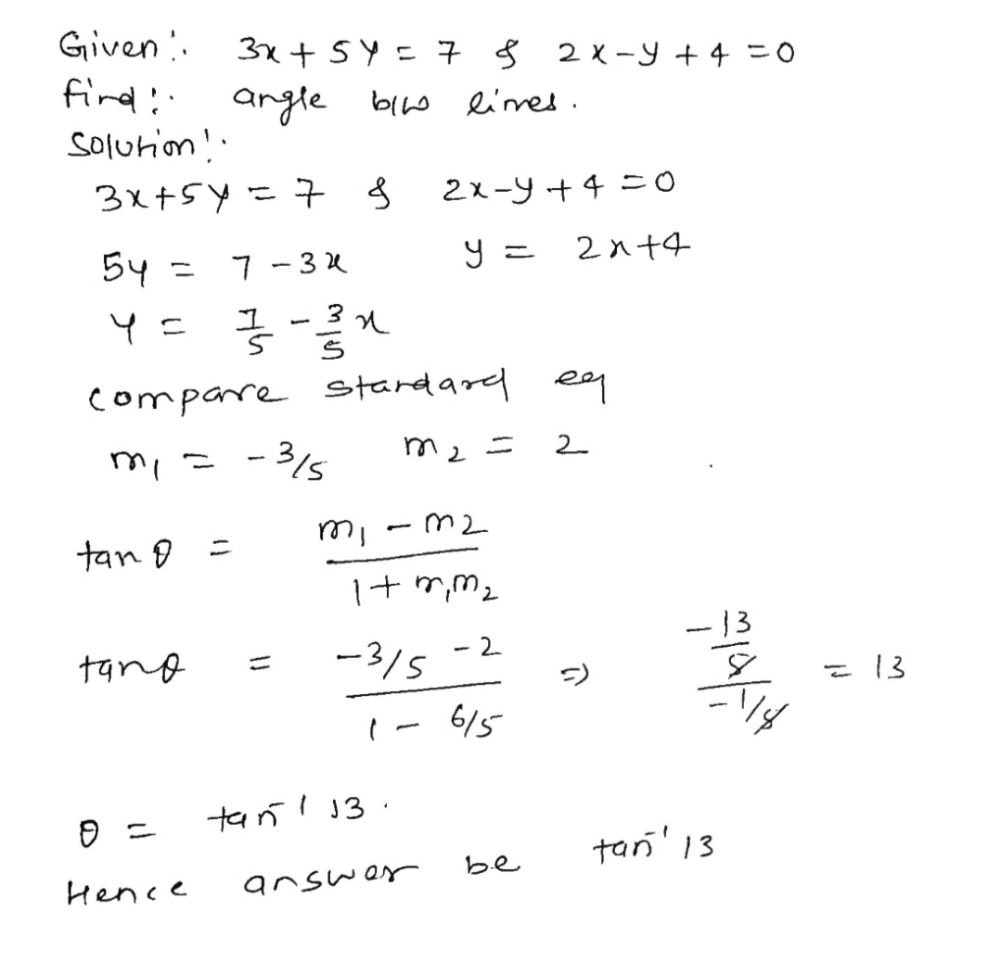 Given:. 3x + 5y = 7 & 2x-y+4=0
find:. angle b/w lines.
Solution:.
3x+5y = 7 & 2x-y+4=0
5y = 7-3x y = 2x+4
y = 7/5 - 3/5 x
compare standard eq
m₁ = -3/5 m₂ = 2
tan θ = (m₁ - m₂)/(1 + m₁m₂)
tanθ = (-3/5 - 2)/(1 - 6/5) ⇒ (-13/5)/(-1/5) = 13
θ = tan⁻¹ 13.
Hence answer be tan⁻¹ 13